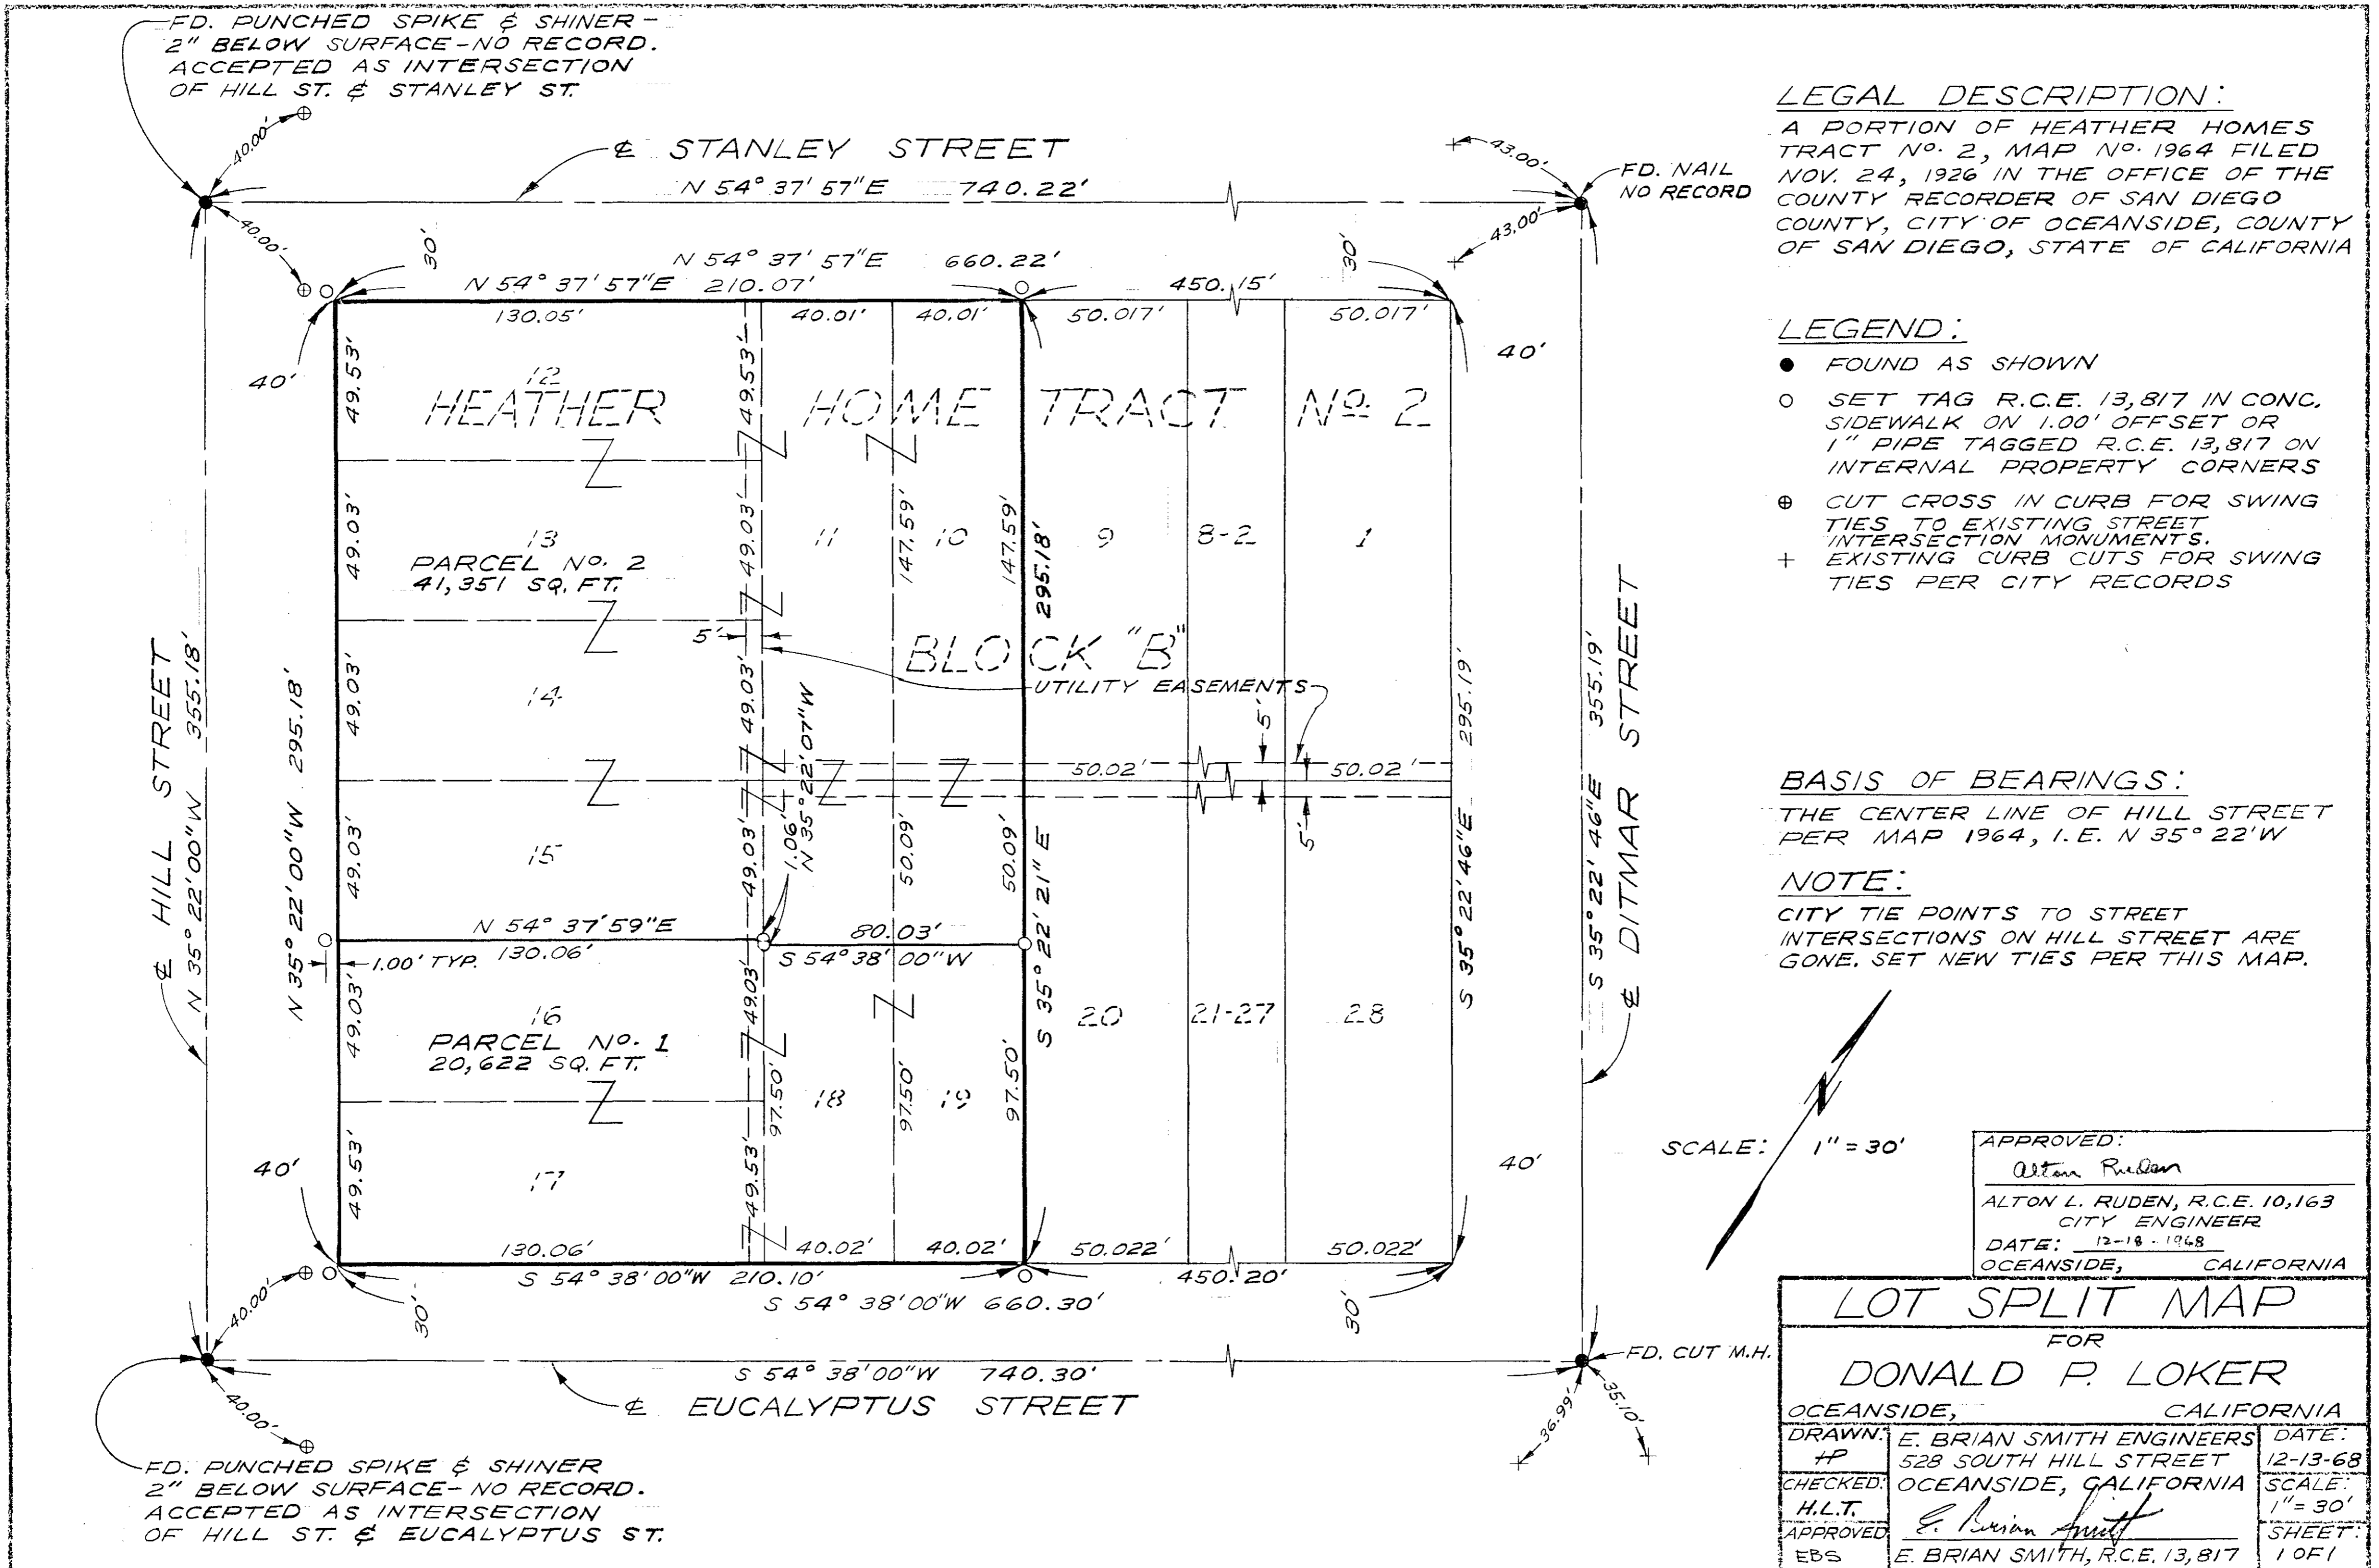 FD. PUNCHED SPIKE & SHINER -
2" BELOW SURFACE - NO RECORD.
ACCEPTED AS INTERSECTION
OF HILL ST. & STANLEY ST.
40.00'
40.00'
℄ STANLEY STREET
N 54° 37' 57"E 740.22'
43.00'
43.00'
FD. NAIL
NO RECORD
30'
N 54° 37' 57"E 660.22'
30'
N 54° 37' 57"E 210.07'
450.15'
130.05'
40.01'
40.01'
50.017'
50.017'
40'
40'
49.53'
49.53'
12
HEATHER HOME TRACT Nº 2
49.03'
49.03'
13
PARCEL Nº. 2
41,351 SQ. FT.
11
147.59'
10
147.59'
295.18'
9
8-2
1
5'
BLOCK "B"
UTILITY EASEMENTS
49.03'
14
49.03'
N 35° 22' 07"W
1.06'
5'
50.02'
50.02'
5'
℄ HILL STREET
N 35° 22' 00"W 355.18'
N 35° 22' 00"W 295.18'
S 35° 22' 46"E 295.19'
S 35° 22' 46"E 355.19'
℄ DITMAR STREET
49.03'
15
49.03'
50.09'
50.09'
S 35° 22' 21" E
N 54° 37' 59"E
130.06'
80.03'
S 54° 38' 00"W
1.00' TYP.
49.03'
16
49.03'
PARCEL Nº. 1
20,622 SQ. FT.
20
21-27
28
97.50'
18
97.50'
19
97.50'
49.53'
17
49.53'
40'
40'
130.06'
40.02'
40.02'
50.022'
50.022'
S 54° 38' 00"W 210.10'
450.20'
S 54° 38' 00"W 660.30'
30'
30'
40.00'
S 54° 38' 00"W 740.30'
℄ EUCALYPTUS STREET
40.00'
FD. CUT M.H.
36.99'
35.10'
FD. PUNCHED SPIKE & SHINER
2" BELOW SURFACE - NO RECORD.
ACCEPTED AS INTERSECTION
OF HILL ST. & EUCALYPTUS ST.
LEGAL DESCRIPTION:
A PORTION OF HEATHER HOMES
TRACT Nº. 2, MAP Nº. 1964 FILED
NOV. 24, 1926 IN THE OFFICE OF THE
COUNTY RECORDER OF SAN DIEGO
COUNTY, CITY OF OCEANSIDE, COUNTY
OF SAN DIEGO, STATE OF CALIFORNIA
LEGEND:
● FOUND AS SHOWN
○ SET TAG R.C.E. 13,817 IN CONC.
SIDEWALK ON 1.00' OFFSET OR
1" PIPE TAGGED R.C.E. 13,817 ON
INTERNAL PROPERTY CORNERS
⊕ CUT CROSS IN CURB FOR SWING
TIES TO EXISTING STREET
INTERSECTION MONUMENTS.
+ EXISTING CURB CUTS FOR SWING
TIES PER CITY RECORDS
BASIS OF BEARINGS:
THE CENTER LINE OF HILL STREET
PER MAP 1964, I.E. N 35° 22' W
NOTE:
CITY TIE POINTS TO STREET
INTERSECTIONS ON HILL STREET ARE
GONE. SET NEW TIES PER THIS MAP.
N
SCALE: 1" = 30'
APPROVED:
Alton Ruden
ALTON L. RUDEN, R.C.E. 10,163
CITY ENGINEER
DATE: 12-18-1968
OCEANSIDE, CALIFORNIA
LOT SPLIT MAP
FOR
DONALD P. LOKER
OCEANSIDE, CALIFORNIA
DRAWN: HP
E. BRIAN SMITH ENGINEERS
528 SOUTH HILL STREET
OCEANSIDE, CALIFORNIA
DATE:
12-13-68
CHECKED:
H.L.T.
SCALE:
1" = 30'
APPROVED
EBS
E. Brian Smith
E. BRIAN SMITH, R.C.E. 13,817
SHEET:
1 OF 1